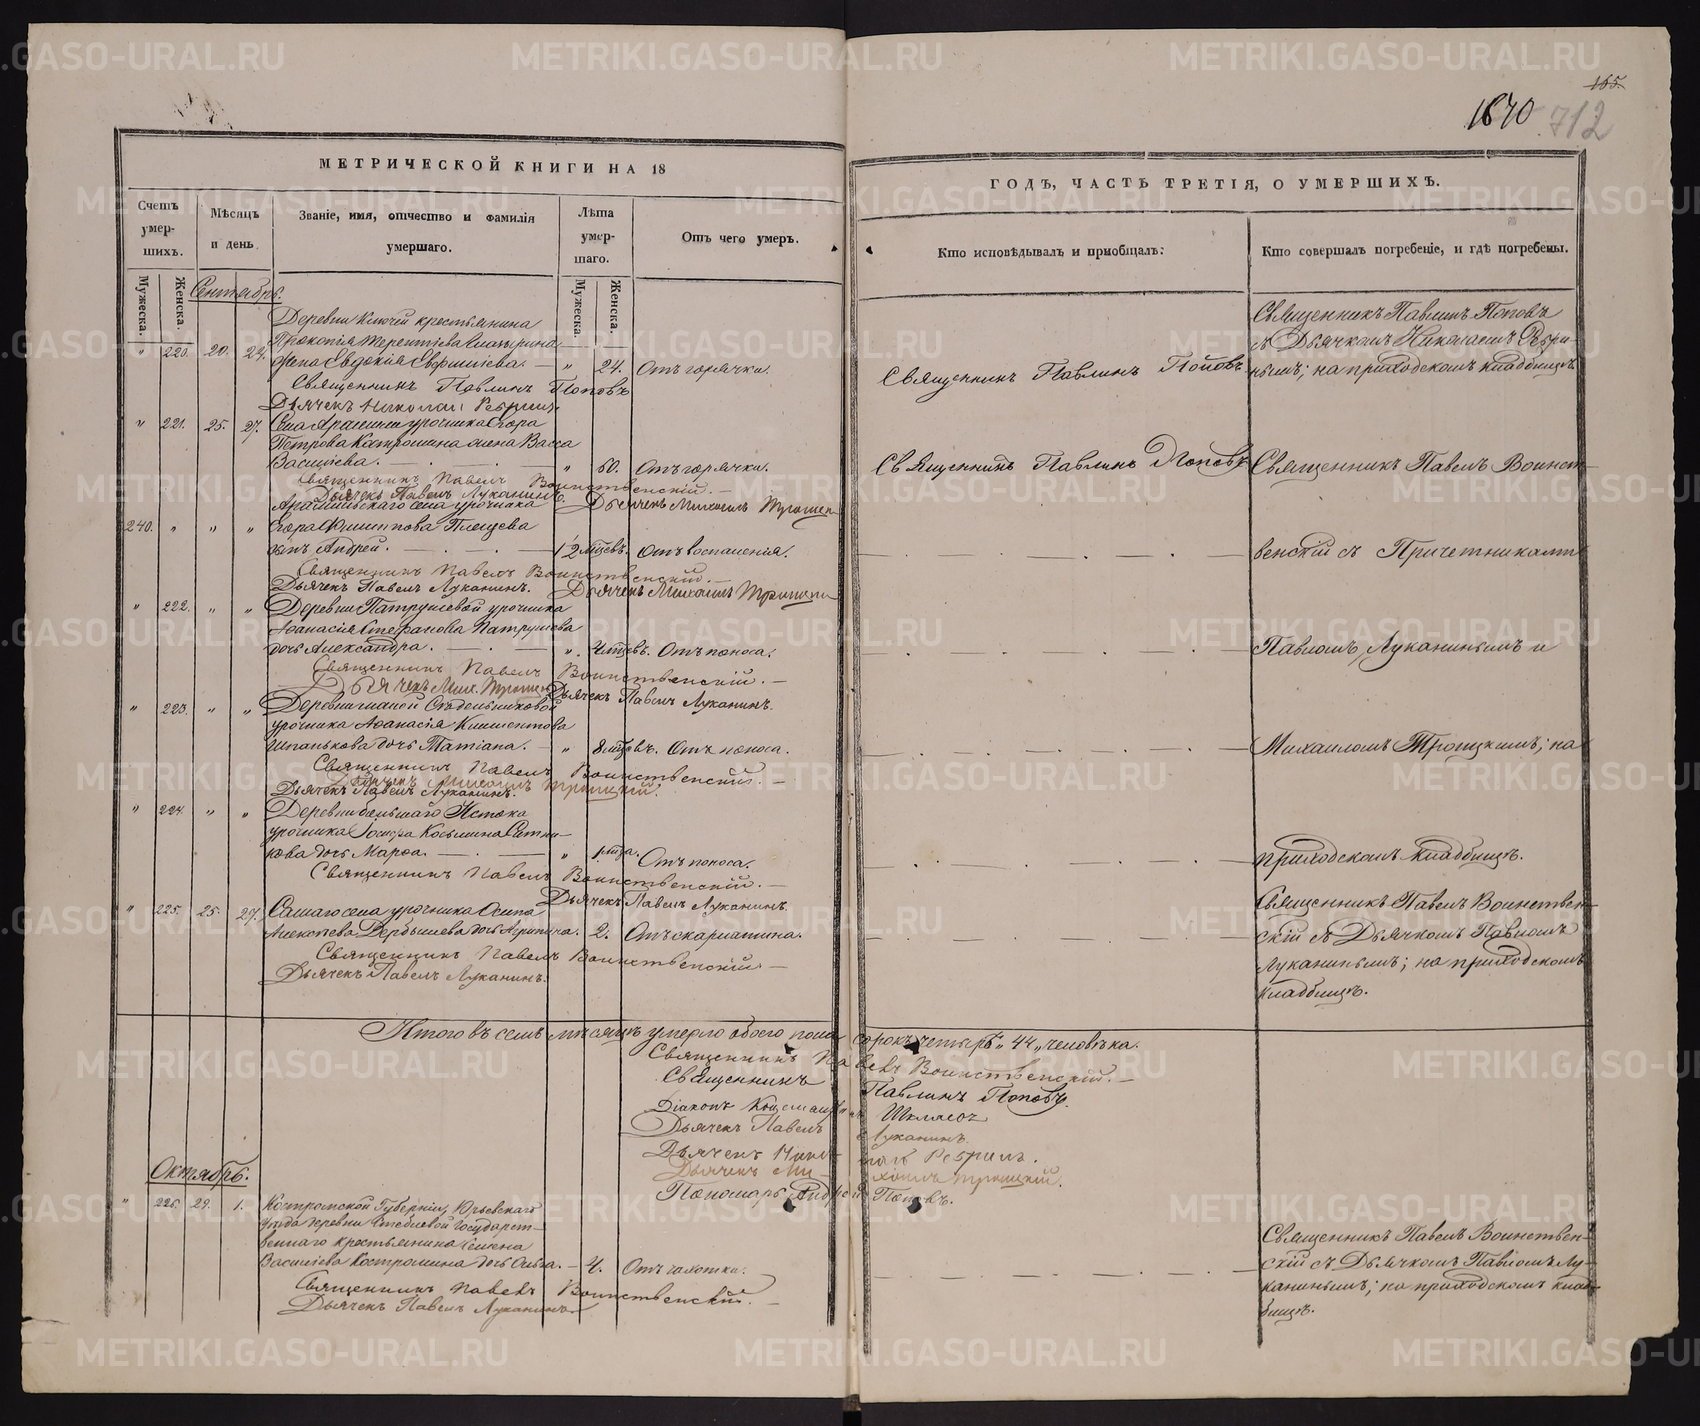 155.
1640 712
МЕТРИЧЕСКОЙ КНИГИ НА 18
ГОДЪ, ЧАСТЬ ТРЕТІЯ, О УМЕРШИХЪ.
Счетъ умер-шихъ.
Мѣсяцъ и день.
Званіе, имя, отчество и фамилія умершаго.
Лѣта умер-шаго.
Отъ чего умеръ.
Кто исповѣдывалъ и пріобщалъ:
Кто совершалъ погребеніе, и гдѣ погребены.
Мужеска.
Женска.
Мужеска.
Женска.
Сентябрь.
Деревни Ключей крестьянина
Прокопія Терентіева
„ 220. 20. 22. жена Евдокія Евфиміева. — „ 24. Отъ горячки.
Священникъ Павлинъ Поповъ
Священникъ Павлинъ Поповъ
съ Дьячкомъ Николаемъ Ребри-
нымъ; на приходскомъ кладбищѣ.
Священникъ Павлинъ Поповъ
Дьячекъ Николай Ребринъ
„ 221. 25. 27. Села Арамили урочника Егора
Петрова Костромина жена Васса
Василіева. — „ 60. Отъ горячки.
Священникъ Павлинъ Поповъ
Священникъ Павелъ Воинст-
Священникъ Павелъ Воинственскій. —
Дьячекъ Павелъ Луканинъ.
Дьячекъ Михаилъ Троицкій
Арамильскаго села урочника
240. „ „ „ Егора Филиппова Плещева
сынъ Андрей. — 2 мѣсцевъ. Отъ воспаленія.
венскій съ Причетниками
Священникъ Павелъ Воинственскій. —
Дьячекъ Павелъ Луканинъ. Дьячекъ Михаилъ Троицкій
„ 222. „ „ Деревни Патрушевой урочника
Аѳанасія Стефанова Патрушева
дочь Александра. — „ мѣсцевъ. Отъ поноса.
Павломъ Луканинымъ и
Священникъ Павелъ Воинственскій. —
Дьячекъ Мих. Троицкій Дьячекъ Павелъ Луканинъ.
„ 223. „ „ Деревни малой Сѣдельниковой
урочника Аѳанасія Климентова
Шпанькова дочь Татіана. — „ 8 мѣсцевъ. Отъ поноса.
Михаиломъ Троицкимъ; на
Священникъ Павелъ Воинственскій. —
Дьячекъ Михаилъ Троицкій.
Дьячекъ Павелъ Луканинъ.
„ 224. „ „ Деревни большаго Истока
урочника Іосифа Косьмина Ситни-
кова дочь Марѳа. — „ 1 мѣсца. Отъ поноса.
приходскомъ кладбищѣ.
Священникъ Павелъ Воинственскій. —
Дьячекъ Павелъ Луканинъ.
„ 225. 25. 27. Самаго села урочника Осипа
Алексѣева Дербышева дочь Арипина. 2. Отъ скарлатина.
Священникъ Павелъ Воинствен-
скій съ Дьячкомъ Павломъ
Луканинымъ; на приходскомъ
кладбищѣ.
Священникъ Павелъ Воинственскій. —
Дьячекъ Павелъ Луканинъ.
Итого въ семъ мѣсяцѣ умерло обоего пола сорокъ четыре „44„ человѣка.
Священникъ Павелъ Воинственскій. —
Священникъ Павлинъ Поповъ.
Діаконъ
Дьячекъ Павелъ Луканинъ.
Дьячекъ Николай Ребринъ.
Дьячекъ Михаилъ Троицкій.
Пономарь Андрей Поповъ.
Октябрь.
„ 226. 29. 1. Костромской Губерніи, Юрьевскаго
уѣзда деревни государст-
веннаго крестьянина Семена
Василіева Костромина дочь Ольга. — 4. Отъ чахотки.
Священникъ Павелъ Воинствен-
скій съ Дьячкомъ Павломъ Лу-
канинымъ; на приходскомъ клад-
бищѣ.
Священникъ Павелъ Воинственскій. —
Дьячекъ Павелъ Луканинъ.
METRIKI.GASO-URAL.RU